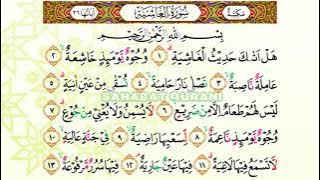 مَكِيَّة سُورَةُ الْغَاشِيَة آيَاتُهَا ٢٦
بِسْمِ اللَّهِ الرَّحْمَنِ الرَّحِيمِ
هَلْ أَتَىٰكَ حَدِيثُ الْغَاشِيَةِ ١ وُجُوهٌ يَوْمَئِذٍ خَاشِعَةٌ ٢
عَامِلَةٌ نَاصِبَةٌ ٣ تَصْلَىٰ نَارًا حَامِيَةً ٤ تُسْقَىٰ مِنْ عَيْنٍ اٰنِيَةٍ ٥
لَيْسَ لَهُمْ طَعَامٌ إِلَّا مِنْ ضَرِيعٍ ٦ لَا يُسْمِنُ وَلَا يُغْنِي مِنْ جُوعٍ ٧
وُجُوهٌ يَوْمَئِذٍ نَاعِمَةٌ ٨ لِسَعْيِهَا رَاضِيَةٌ ٩ فِي جَنَّةٍ عَالِيَةٍ ١٠
لَا تَسْمَعُ فِيهَا لَاغِيَةً ١١ فِيهَا عَيْنٌ جَارِيَةٌ ١٢ فِيهَا سُرُرٌ مَرْفُوعَةٌ ١٣